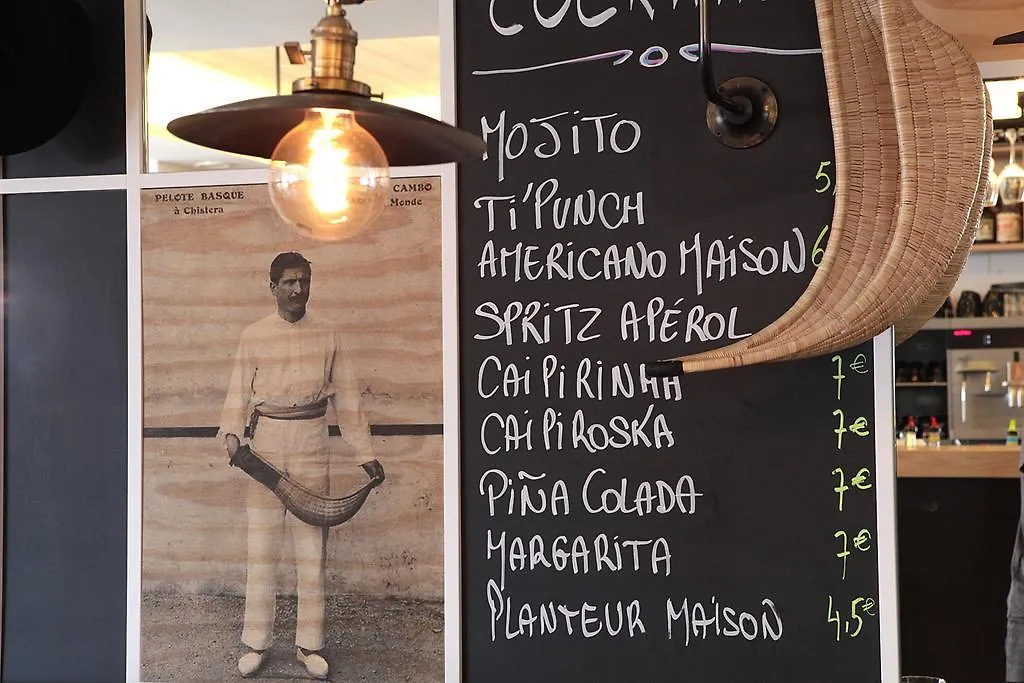 PELOTE BASQUE CAMBO
à Chistera Monde
MOJITO
TI'PUNCH 5
AMERICANO MAISON 6
SPRITZ APÉROL
CAIPIRINHA 7€
CAIPIROSKA 7€
PIÑA COLADA 7€
MARGARITA 7€
PLANTEUR MAISON 4,5€